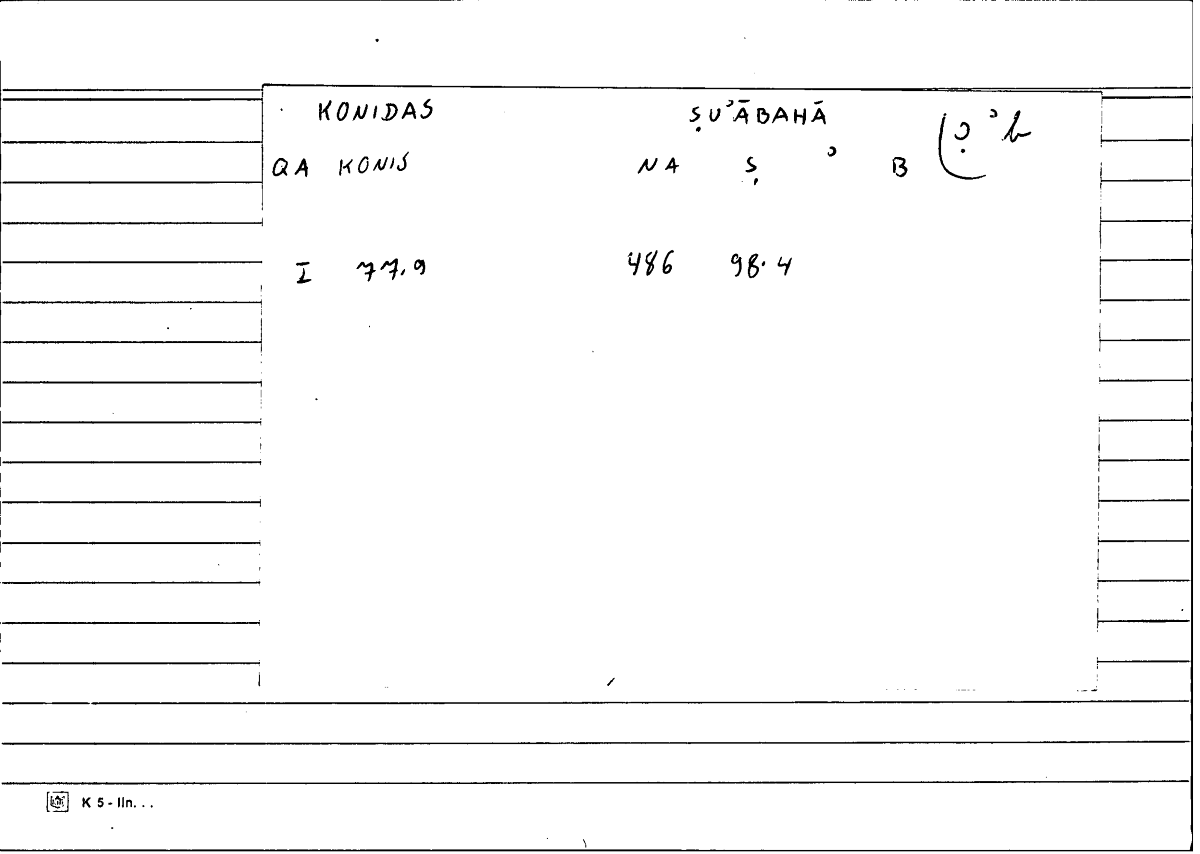 KONIDAS ṢUʾĀBAHĀ
QA KONIS NA Ṣ ʾ B
I 77.9 486 98.4
K 5 - lin...